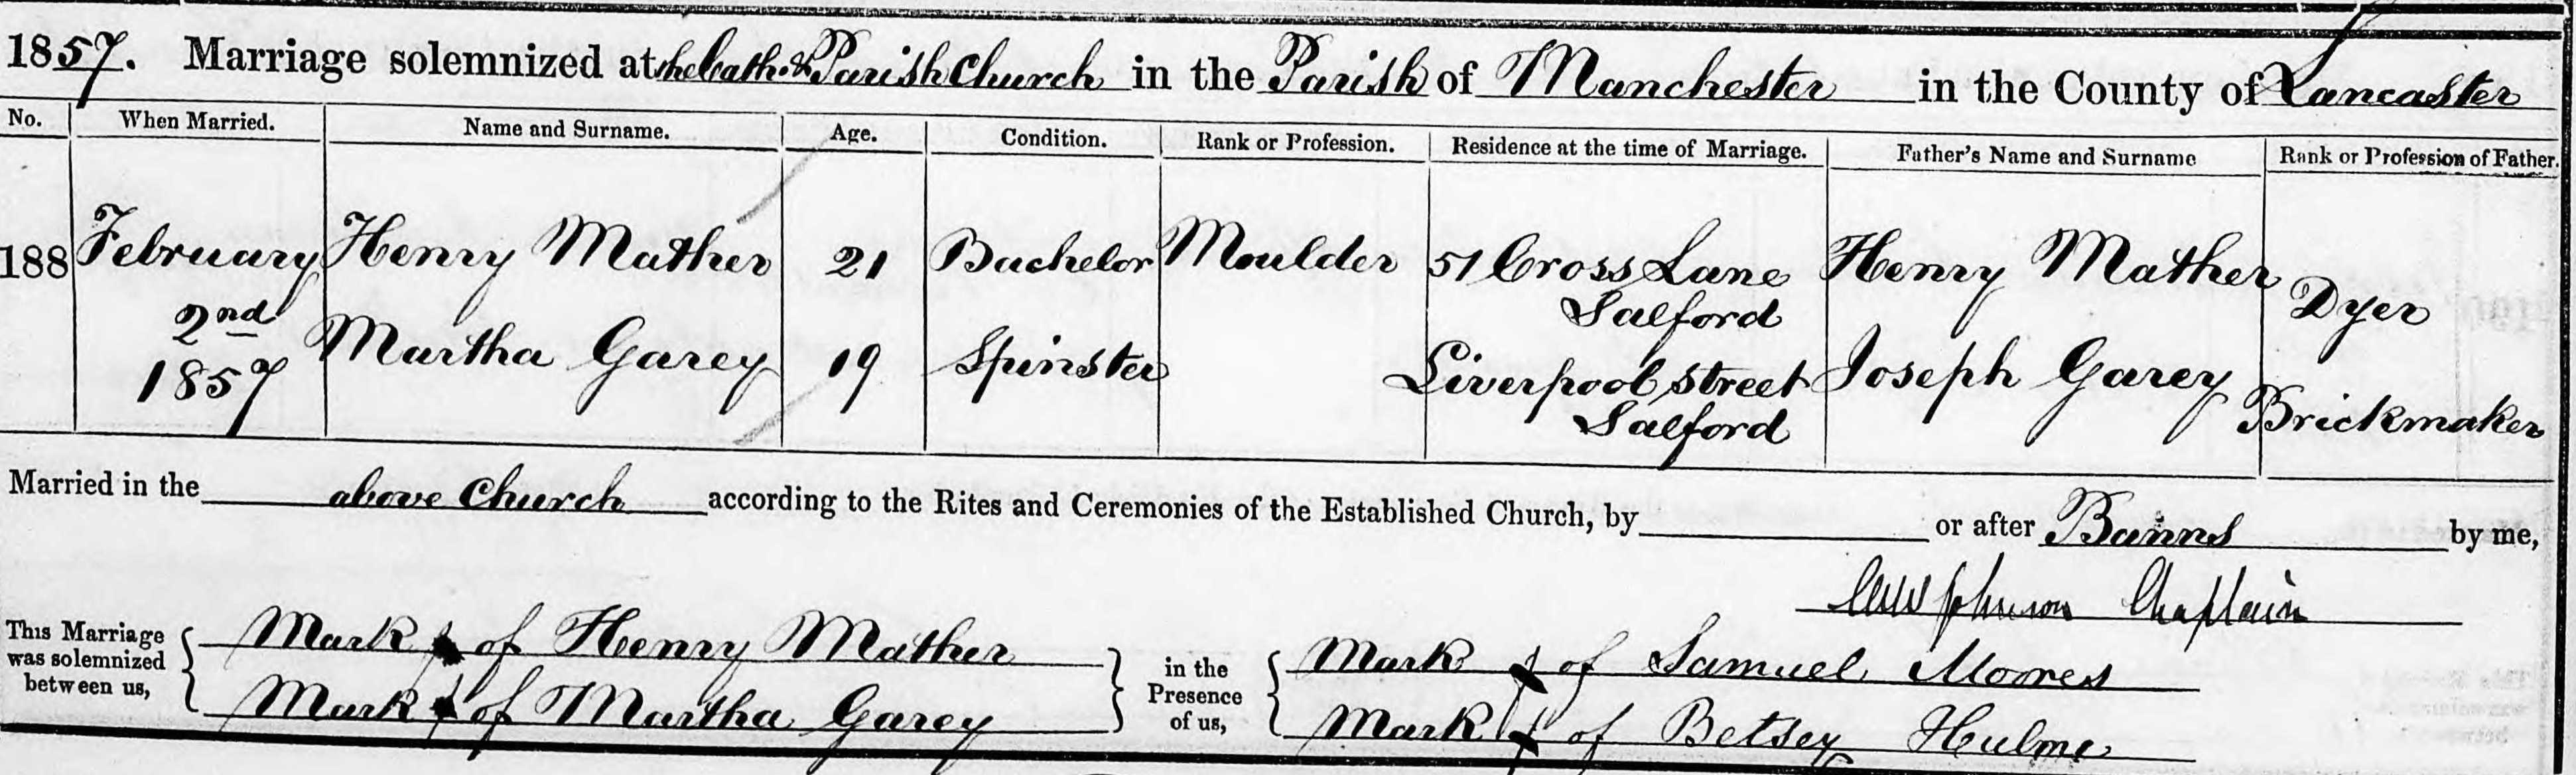 1857. Marriage solemnized at the Cath. & Parish Church in the Parish of Manchester in the County of Lancaster
No. When Married. Name and Surname. Age. Condition. Rank or Profession. Residence at the time of Marriage. Father's Name and Surname Rank or Profession of Father.
188 February 2nd 1857 Henry Mather 21 Bachelor Moulder 51 Cross Lane Salford Henry Mather Dyer
Martha Garey 19 Spinster Liverpool Street Salford Joseph Garey Brickmaker
Married in the above Church according to the Rites and Ceremonies of the Established Church, by or after Banns by me,
Johnson Chaplain
This Marriage was solemnized between us, Mark X of Henry Mather in the Presence of us, Mark X of Samuel Moores
Mark X of Martha Garey Mark X of Betsey Hulme